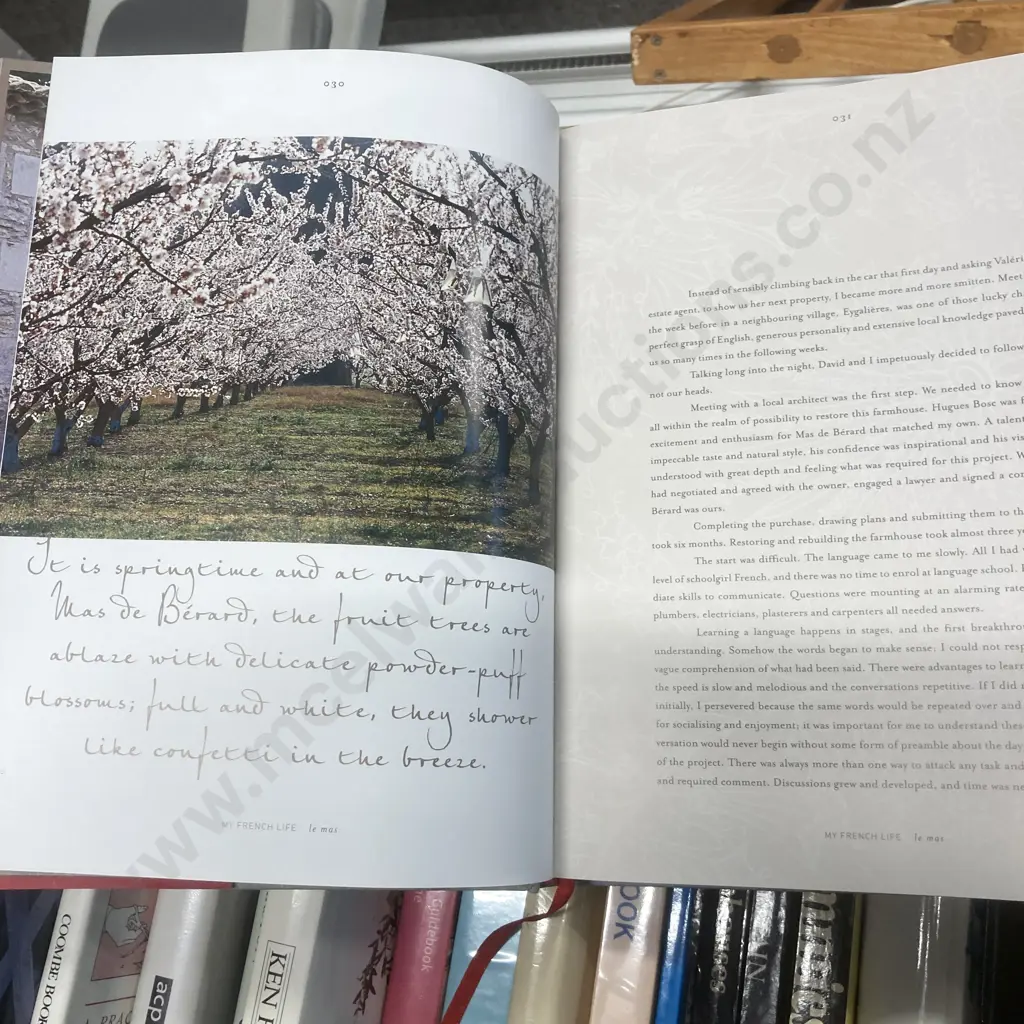 030
It is springtime and at our property,
Mas de Bérard, the fruit trees are
ablaze with delicate powder-puff
blossoms; full and white, they shower
like confetti in the breeze.
MY FRENCH LIFE le mas
031
Instead of sensibly climbing back in the car that first day and asking Valéri
estate agent, to show us her next property, I became more and more smitten. Meet
the week before in a neighbouring village, Eygalières, was one of those lucky ch
perfect grasp of English, generous personality and extensive local knowledge paved
us so many times in the following weeks.
Talking long into the night, David and I impetuously decided to follow
not our heads.
Meeting with a local architect was the first step. We needed to know
all within the realm of possibility to restore this farmhouse. Hugues Bosc was
excitement and enthusiasm for Mas de Bérard that matched my own. A talen
impeccable taste and natural style, his confidence was inspirational and his vis
understood with great depth and feeling what was required for this project. W
had negotiated and agreed with the owner, engaged a lawyer and signed a con
Bérard was ours.
Completing the purchase, drawing plans and submitting them to th
took six months. Restoring and rebuilding the farmhouse took almost three y
The start was difficult. The language came to me slowly. All I had
level of schoolgirl French, and there was no time to enrol at language school.
diate skills to communicate. Questions were mounting at an alarming rate
plumbers, electricians, plasterers and carpenters all needed answers.
Learning a language happens in stages, and the first breakthro
understanding. Somehow the words began to make sense; I could not resp
vague comprehension of what had been said. There were advantages to learn
the speed is slow and melodious and the conversations repetitive. If I did
initially, I persevered because the same words would be repeated over and
for socialising and enjoyment; it was important for me to understand thes
versation would never begin without some form of preamble about the day
of the project. There was always more than one way to attack any task and
and required comment. Discussions grew and developed, and time was ne
MY FRENCH LIFE le mas
COOMBE BOO
acp
KEN
guidebook
OOK